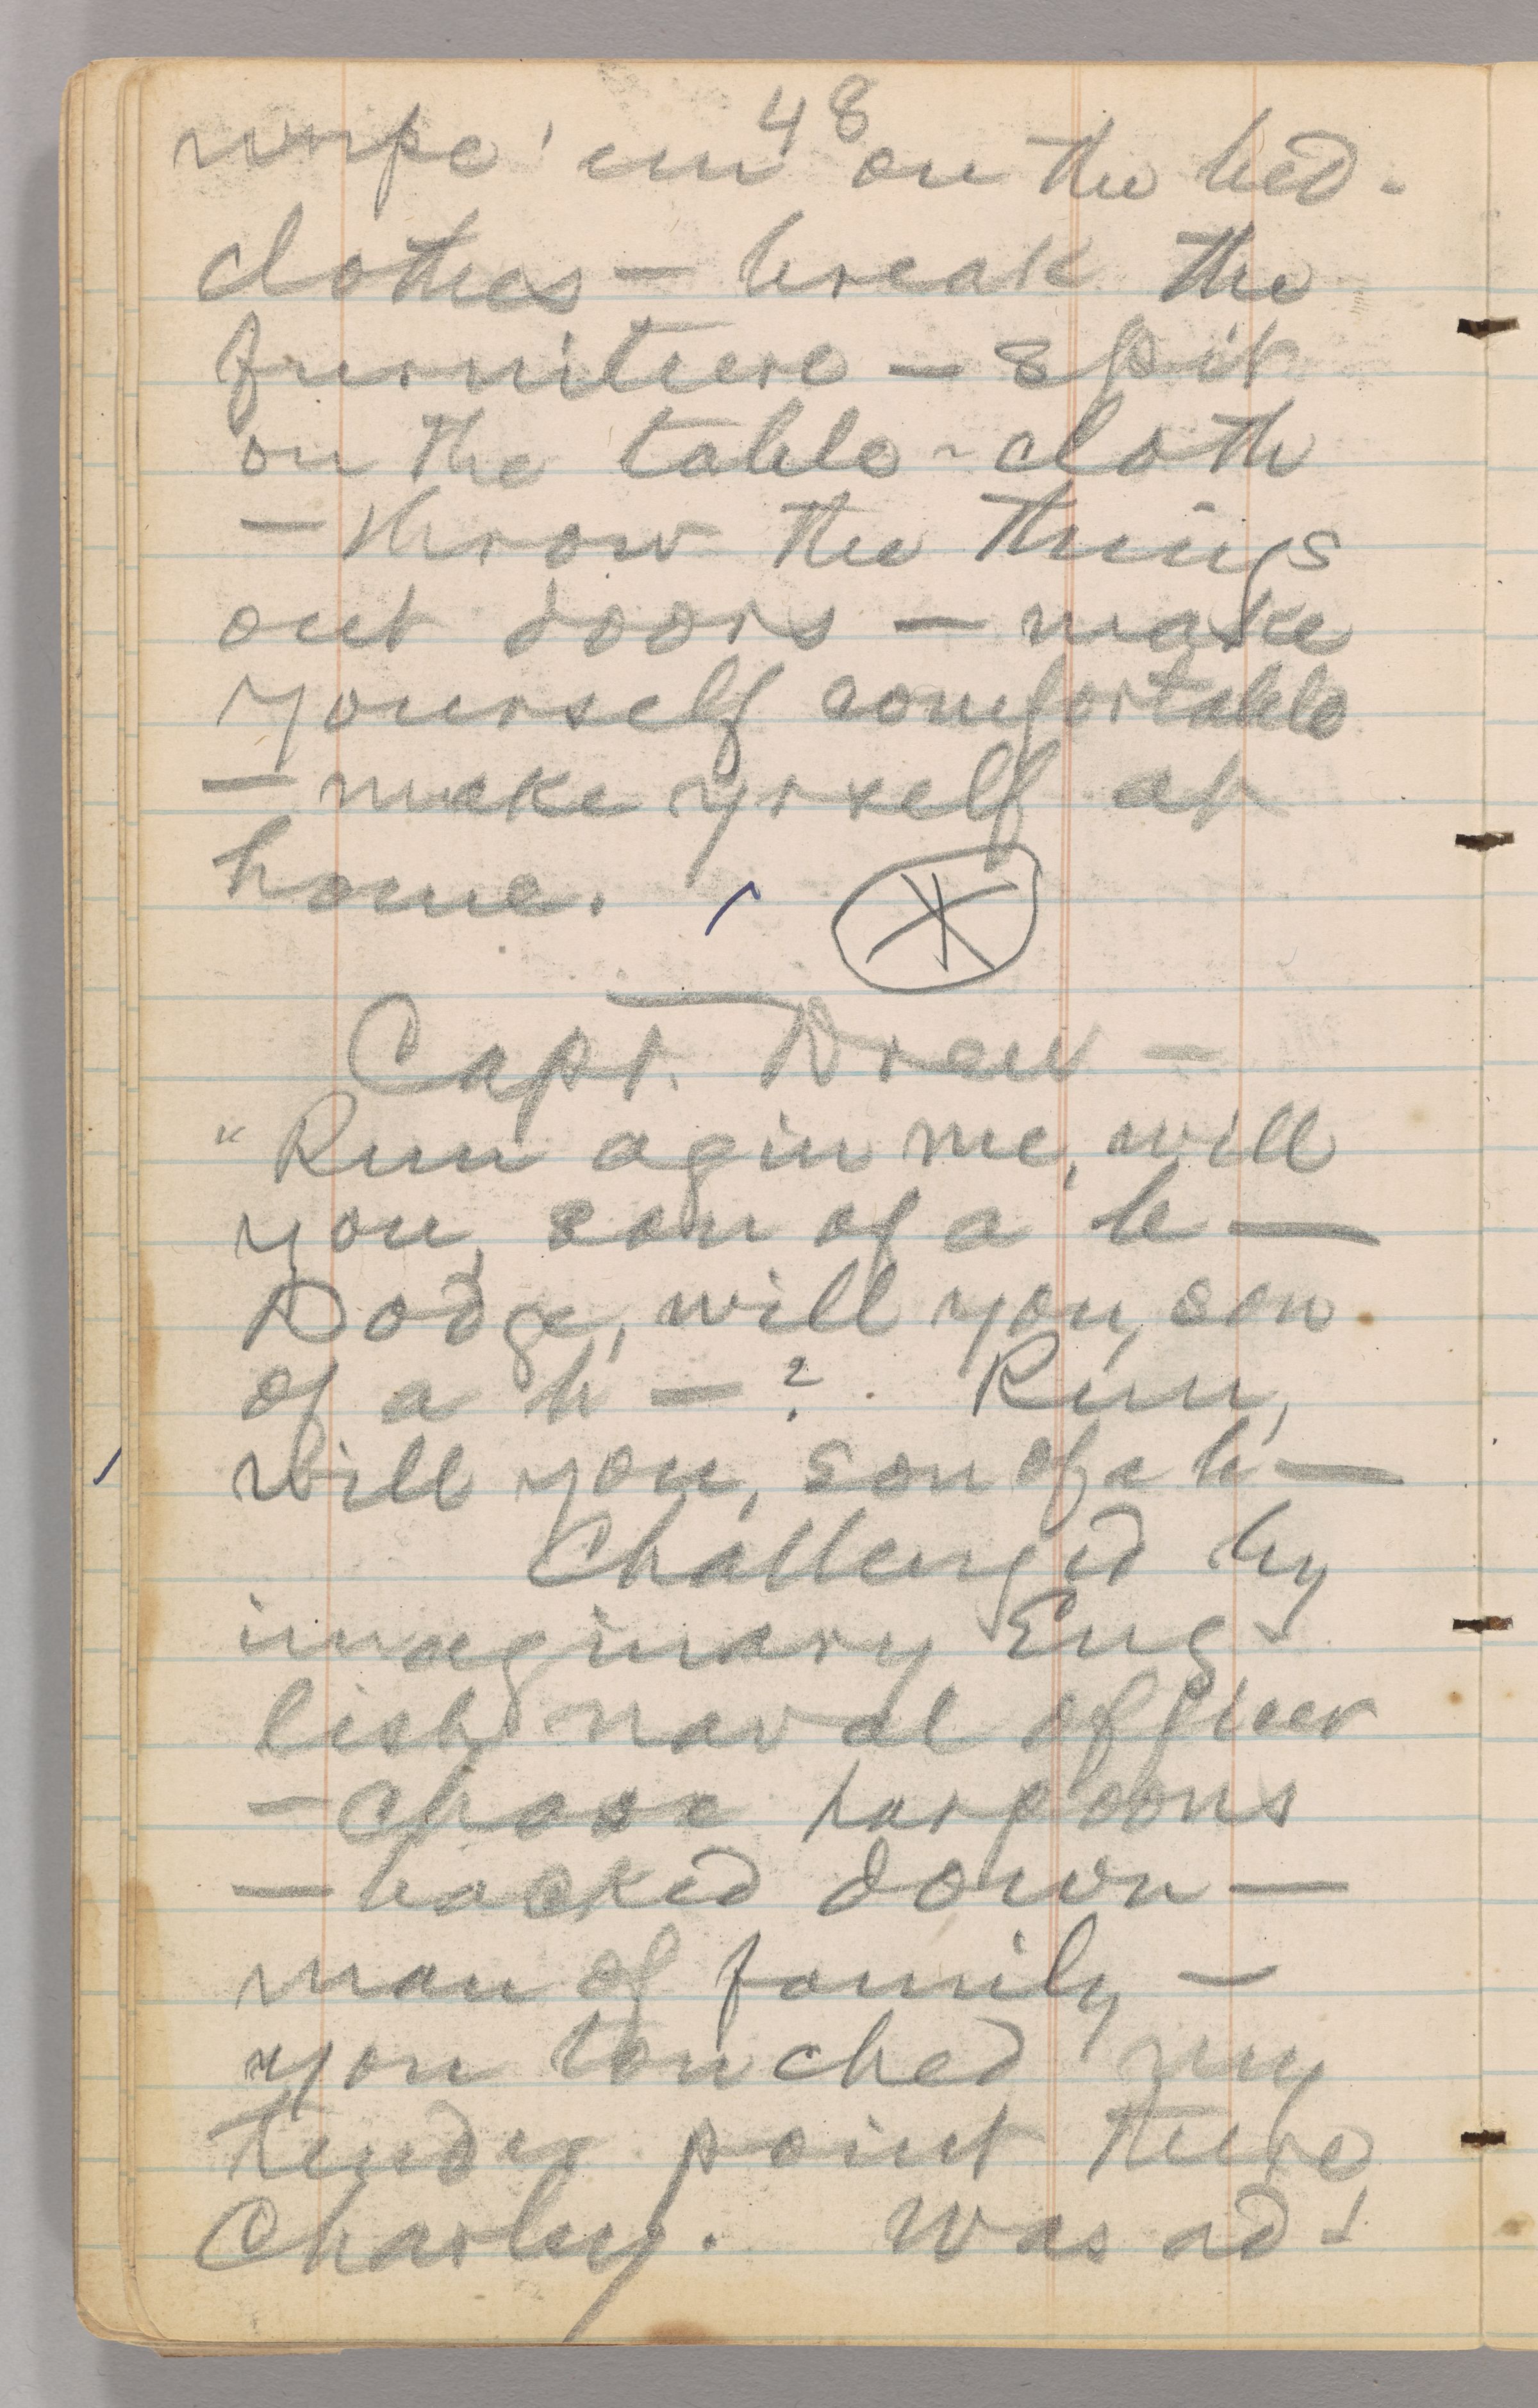 48
wipe 'em on the bed-
clothes — break the
furniture — spit
on the table-cloth
— throw the things
out doors — make
yourself comfortable
— make yrself at
home.
Capt. Drew —
"Run agin me, will
you, son of a b—
Dodge, will you, son
of a b—? Run,
will you, son of a b—
Challenged by
imaginary Eng-
lish naval officer
— chose harpoons
— backed down —
man of family —
you touched my
tender point there
Charley. Was ad-